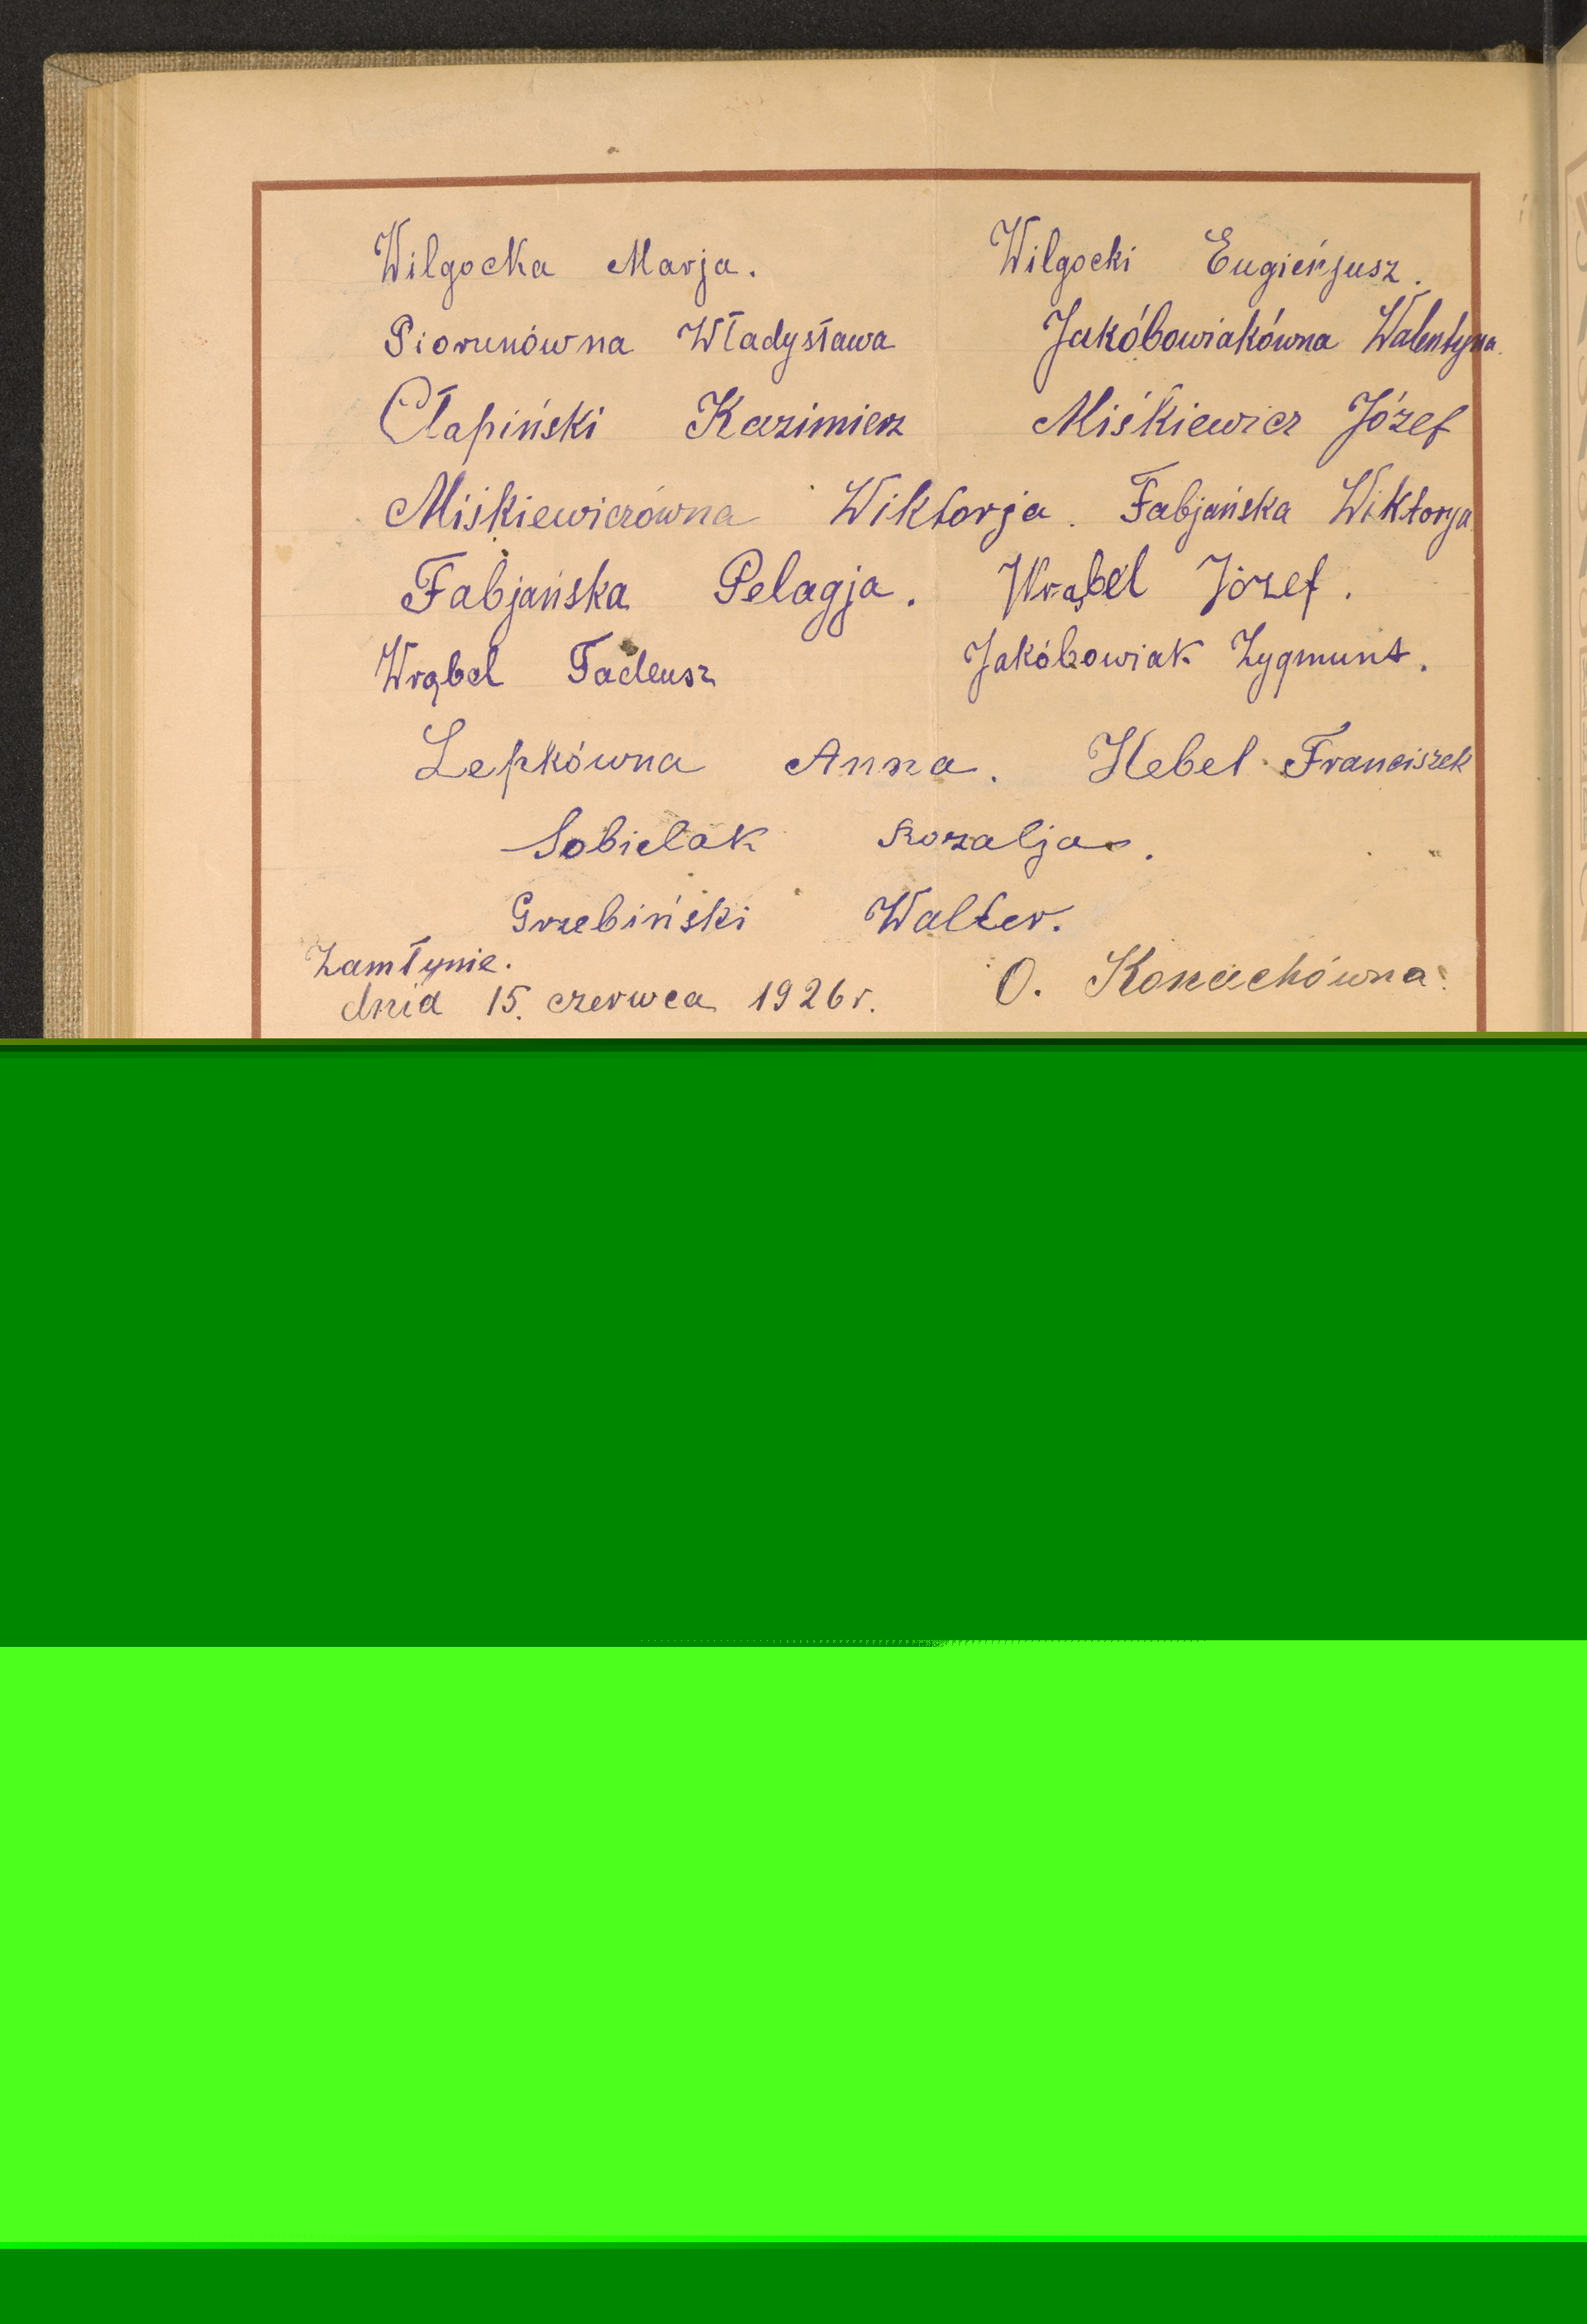 Wilgocka Marja. Wilgocki Eugieńjusz.
Piorunówna Władysława Jakóbowiakówna Walentyna.
Cłapiński Kazimierz Miśkiewicz Józef
Miśkiewiczówna Wiktorja. Fabjańska Wiktorja
Fabjańska Pelagja. Wrąbel Józef.
Wrąbel Tadeusz Jakóbowiak Zygmunt.
Lepkówna Anna. Hebel Franciszek
Sobielak Rozalja.
Grzebiński Walter.
Zamłynie.
dnia 15. czerwca 1926 r. O. Konachówna.